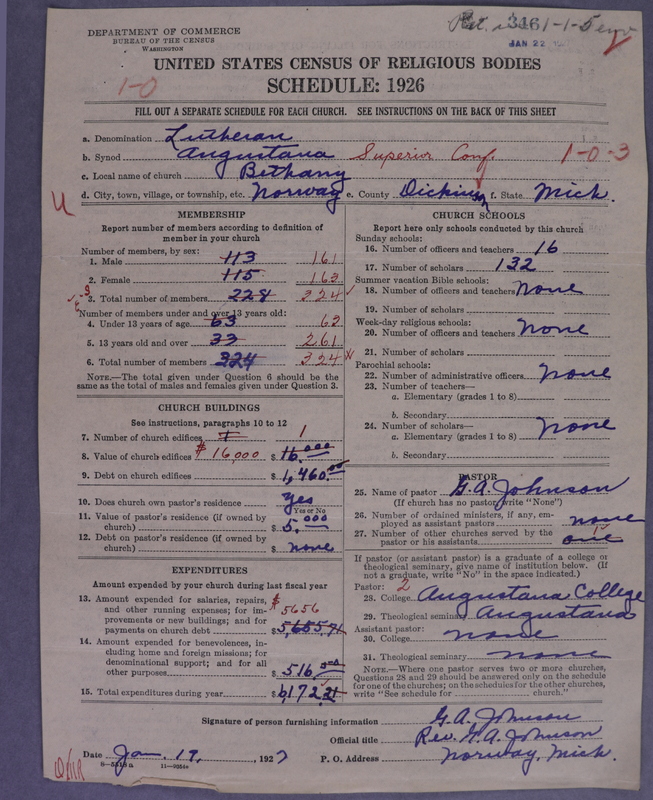 DEPARTMENT OF COMMERCE
BUREAU OF THE CENSUS
WASHINGTON
3461-1-5
JAN 22
UNITED STATES CENSUS OF RELIGIOUS BODIES
1-0
SCHEDULE: 1926
FILL OUT A SEPARATE SCHEDULE FOR EACH CHURCH. SEE INSTRUCTIONS ON THE BACK OF THIS SHEET
a. Denomination Lutheran
b. Synod Augustana Superior Conf. 1-0-3
c. Local name of church Bethany
d. City, town, village, or township, etc. Norway e. County Dickinson f. State Mich.
U
MEMBERSHIP
Report number of members according to definition of
member in your church
Number of members, by sex:
1. Male 113 161
2. Female 115 163
3. Total number of members 228 324
Number of members under and over 13 years old:
4. Under 13 years of age 63 63
5. 13 years old and over 33 261
6. Total number of members 324 324
NOTE.—The total given under Question 6 should be the
same as the total of males and females given under Question 3.
CHURCH BUILDINGS
See instructions, paragraphs 10 to 12
7. Number of church edifices 1 1
8. Value of church edifices $16,000 $ 16,000
9. Debt on church edifices $ 1,460.00
10. Does church own pastor's residence Yes
Yes or No
11. Value of pastor's residence (if owned by
church) $ 5,000
12. Debt on pastor's residence (if owned by
church) $ none
EXPENDITURES
Amount expended by your church during last fiscal year
13. Amount expended for salaries, repairs,
and other running expenses; for im-
provements or new buildings; and for
payments on church debt $ 5656 $ 5,655.71
14. Amount expended for benevolences, in-
cluding home and foreign missions; for
denominational support; and for all
other purposes $ 516
15. Total expenditures during year $ 6,172.21
CHURCH SCHOOLS
Report here only schools conducted by this church
Sunday schools:
16. Number of officers and teachers 16
17. Number of scholars 132
Summer vacation Bible schools:
18. Number of officers and teachers None
19. Number of scholars
Week-day religious schools:
20. Number of officers and teachers None
21. Number of scholars
Parochial schools:
22. Number of administrative officers None
23. Number of teachers—
a. Elementary (grades 1 to 8)
b. Secondary
24. Number of scholars— None
a. Elementary (grades 1 to 8)
b. Secondary
PASTOR
25. Name of pastor G. A. Johnson
(If church has no pastor, write "None")
26. Number of ordained ministers, if any, em-
ployed as assistant pastors none
27. Number of other churches served by the
pastor or his assistants one
If pastor (or assistant pastor) is a graduate of a college or
theological seminary, give name of institution below. (If
not a graduate, write "No" in the space indicated.)
Pastor: 2
28. College Augustana College
29. Theological seminary Augustana
Assistant pastor:
30. College none
31. Theological seminary none
NOTE.—Where one pastor serves two or more churches,
Questions 28 and 29 should be answered only on the schedule
for one of the churches; on the schedules for the other churches,
write "See schedule for church."
Signature of person furnishing information G. A. Johnson
Official title Rev. G. A. Johnson
Date Jan. 19, 1927 P. O. Address Norway, Mich.
8-5518a 11-9554a